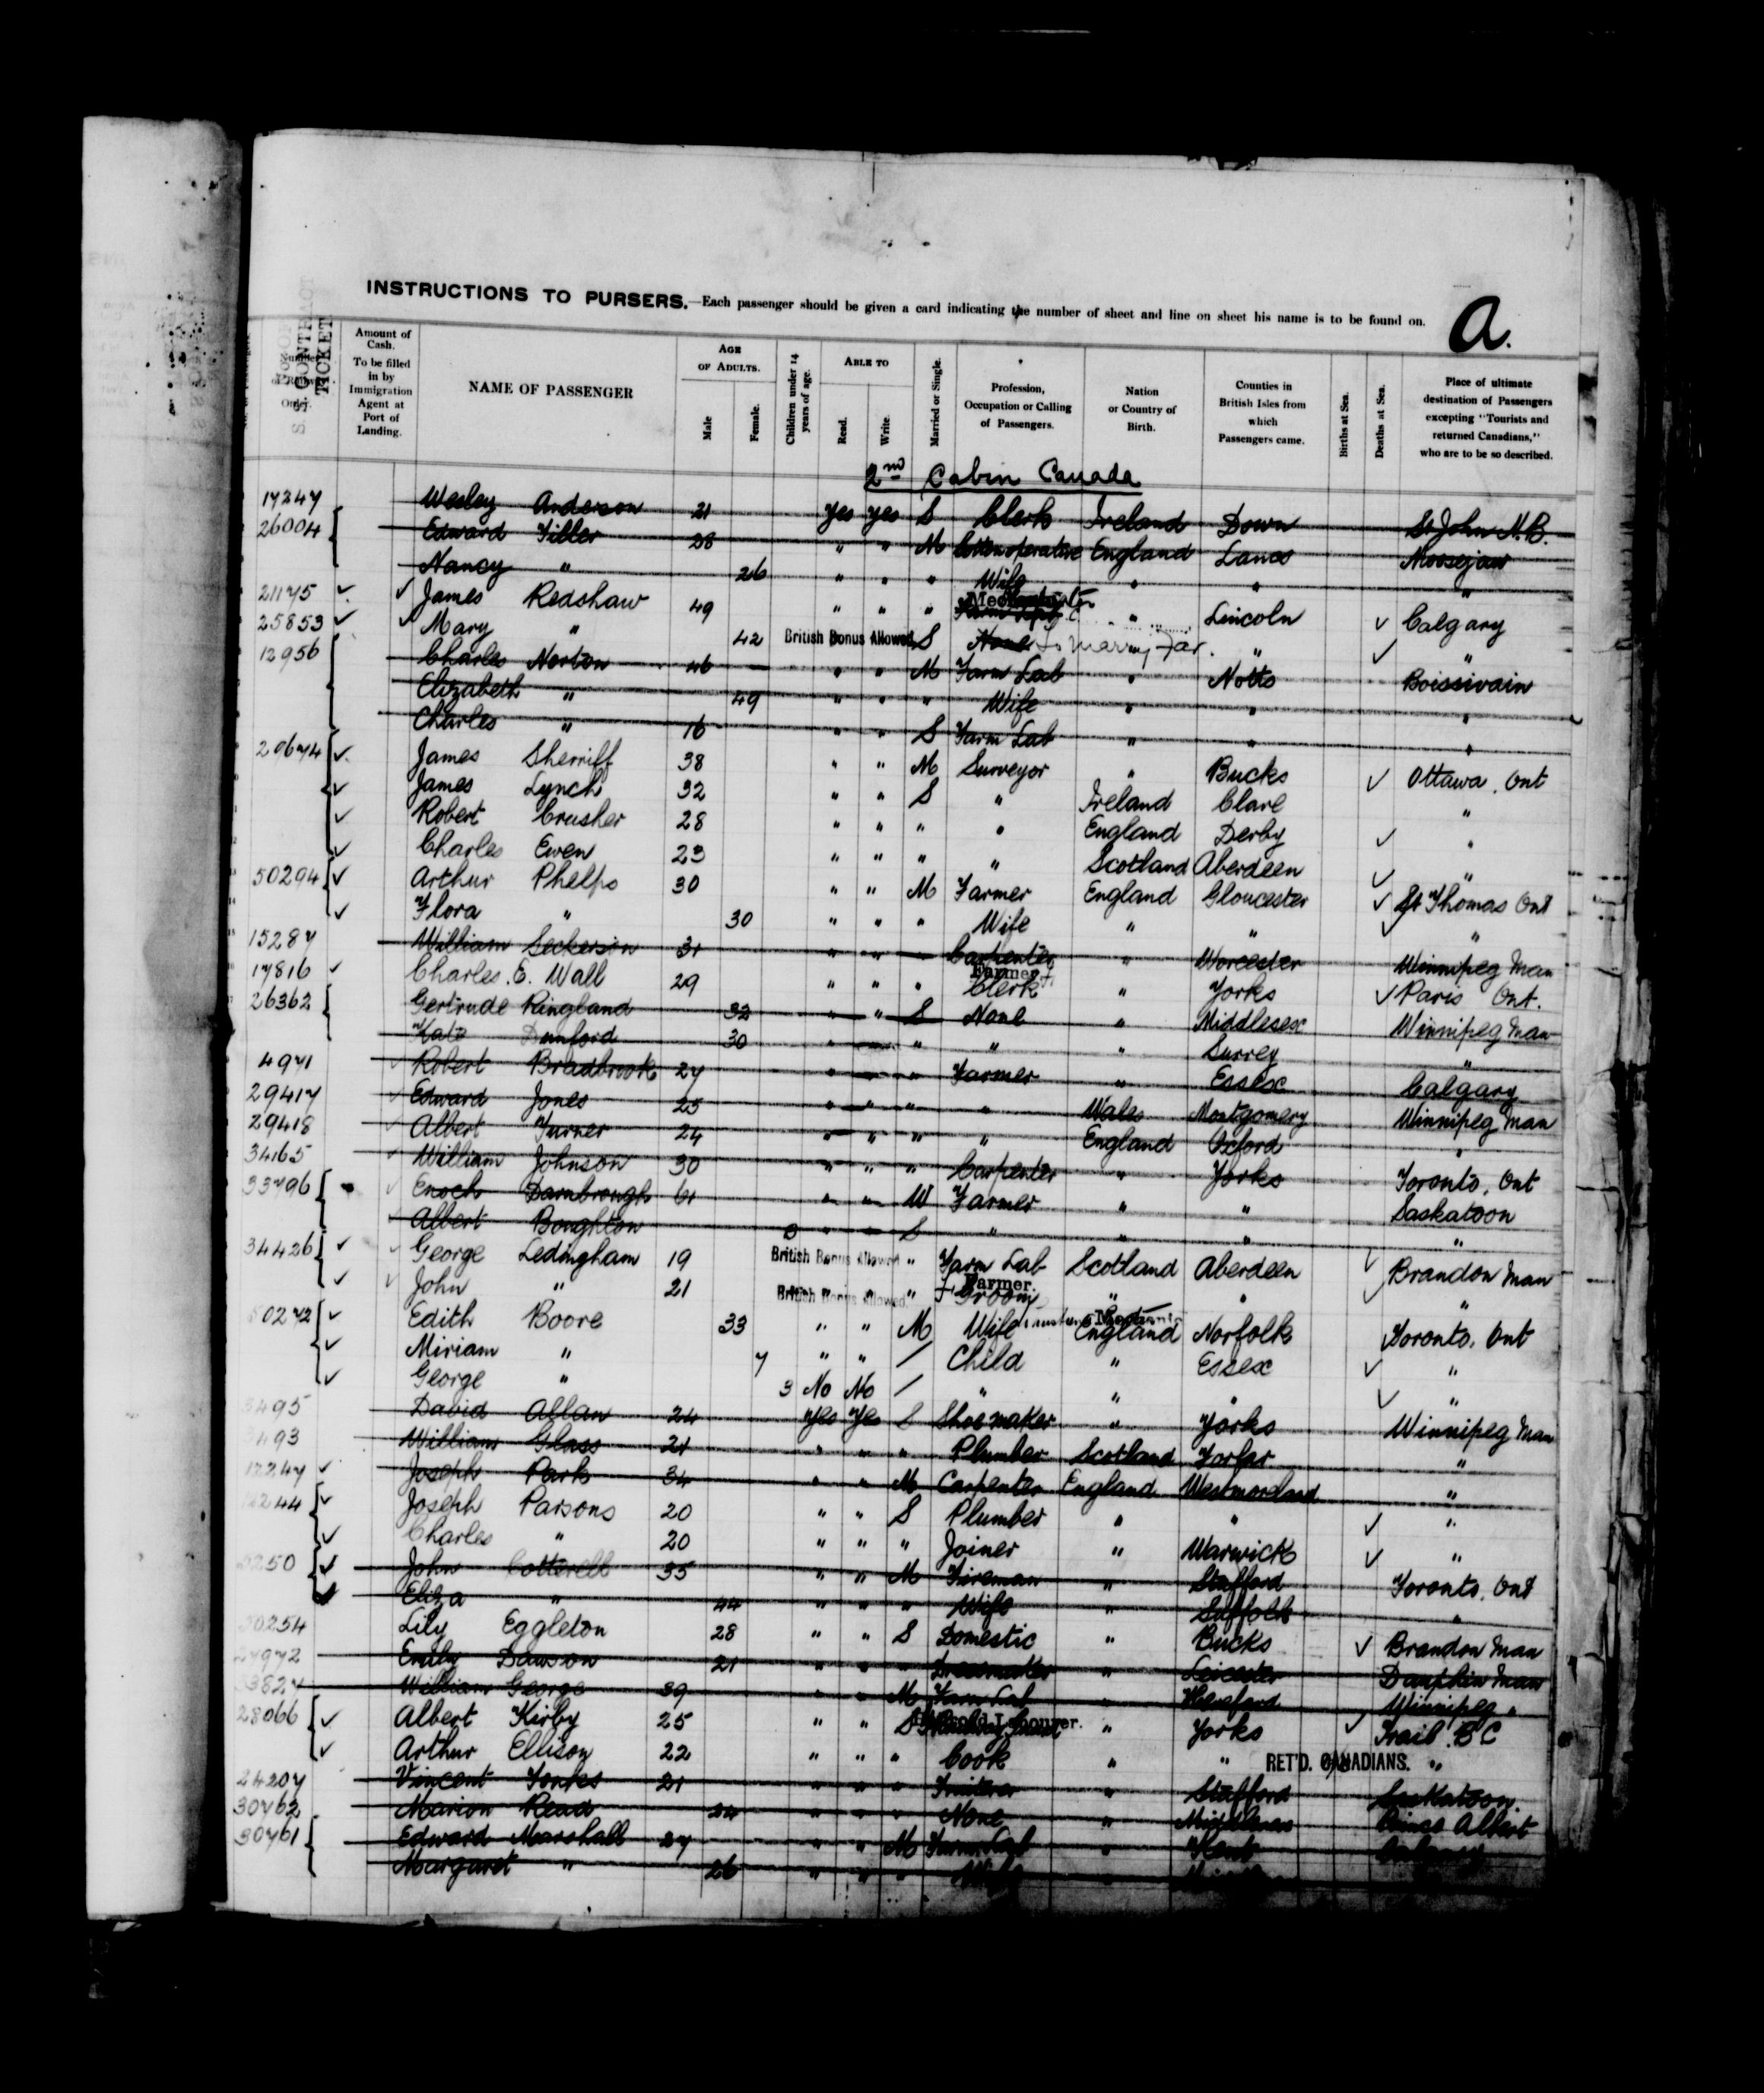 INSTRUCTIONS TO PURSERS.—Each passenger should be given a card indicating the number of sheet and line on sheet his name is to be found on.
a.
CONTRACT TICKET
Amount of Cash. To be filled in by Immigration Agent at Port of Landing.
NAME OF PASSENGER
AGE OF ADULTS.
Male
Female.
Children under 14 years of age.
ABLE TO
Read.
Write.
Married or Single.
Profession, Occupation or Calling of Passengers.
Nation or Country of Birth.
Counties in British Isles from which Passengers came.
Births at Sea.
Deaths at Sea.
Place of ultimate destination of Passengers excepting "Tourists and returned Canadians," who are to be so described.
2nd Cabin Canada
17247 Wesley Anderson 21 Yes Yes S Clerk Ireland Down St John N.B.
26004 Edward Tiller 28 " " M Cotton operative England Lancs Moosejaw
Nancy " 26 " " " Wife " " "
21175 James Redshaw 49 " " " " Lincoln Calgary
25853 Mary " 42 British Bonus Allowed S None To marry Far. " "
12956 Charles Norton 46 " " M Farm Lab " Notts Boissivain
Elizabeth " 49 " " " Wife " " "
Charles " 16 " " S Farm Lab " " "
20674 James Sherriff 38 " " M Surveyor " Bucks Ottawa, Ont
James Lynch 32 " " S " Ireland Clare "
Robert Crusher 28 " " " " England Derby "
Charles Ewen 23 " " " " Scotland Aberdeen "
50294 Arthur Phelps 30 " " M Farmer England Gloucester St Thomas Ont
Flora " 30 " " " Wife " " "
15287 William Seckerson 31 " " " Carpenter " Worcester Winnipeg Man
17816 Charles. E. Wall 29 " " " Farmer Clerk " Yorks Paris Ont.
26362 Gertrude Ringland 32 " " S None " Middlesex Winnipeg Man
Kate Dunford 30 " " " " " Surrey "
4971 Robert Bradbrook 27 " " " Farmer " Essex Calgary
29417 Edward Jones 25 " " " " Wales Montgomery Winnipeg Man
29418 Albert Turner 24 " " " " England Oxford "
34165 William Johnson 30 " " " Carpenter " Yorks Toronto, Ont
33796 Enoch Darnbrough 61 " " W Farmer " " Saskatoon
Albert Boughton " " S " " " "
34426 George Ledingham 19 British Bonus Allowed " Farm Lab Scotland Aberdeen Brandon Man
John " 21 British Bonus Allowed " Farmer Groom " " "
50272 Edith Boore 33 " " M Wife England Norfolk Toronto, Ont
Miriam " 7 " " / Child " Essex "
George " 3 No No / " " " "
3495 David Allan 24 Yes Yes S Shoemaker " Yorks Winnipeg Man
3493 William Glass 21 " " " Plumber Scotland Forfar "
Joseph Park 34 " " M Carpenter England Westmorland "
Joseph Parsons 20 " " S Plumber " " "
Charles " 20 " " " Joiner " Warwick "
John Cotterell 35 " " M Fireman " Stafford Toronto, Ont
Eliza " 44 " " " Wife " Suffolk "
50254 Lily Eggleton 28 " " S Domestic " Bucks Brandon Man
Emily Dawson 21 " " " Dressmaker " Leicester Dauphin Man
William George 39 " " M Farm Lab " Hereford Winnipeg "
28066 Albert Kirby 25 " " S Labourer. " Yorks Trail. BC
Arthur Ellison 22 " " " Cook " " RET'D. CANADIANS. "
24207 Vincent 21 " " " Fruiterer " Stafford Saskatoon.
30762 Marion Read 24 " " " None " Middlesex Prince Albert
30761 Edward Marshall 27 " " M Farm Lab " Kent
Margaret " 26 " " " Wife "